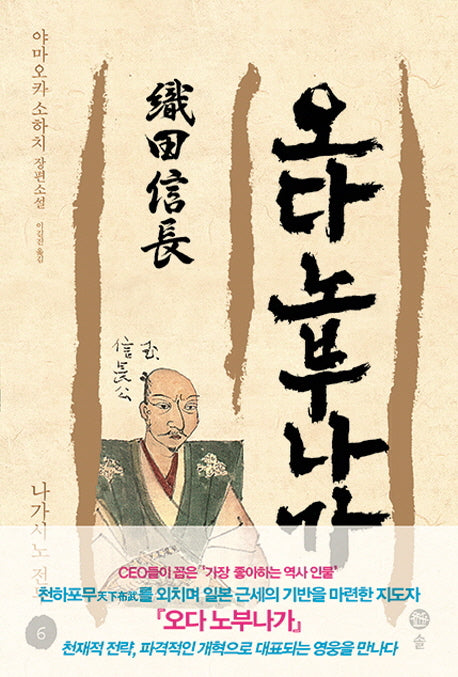 오다 노부나가
織田信長
야마오카 소하치 장편소설
이길진 옮김
信長公
나가시노 전
6
CEO들이 꼽은 "가장 좋아하는 역사 인물"
천하포무天下布武를 외치며 일본 근세의 기반을 마련한 지도자
『오다 노부나가』
천재적 전략, 파격적인 개혁으로 대표되는 영웅을 만나다
솔